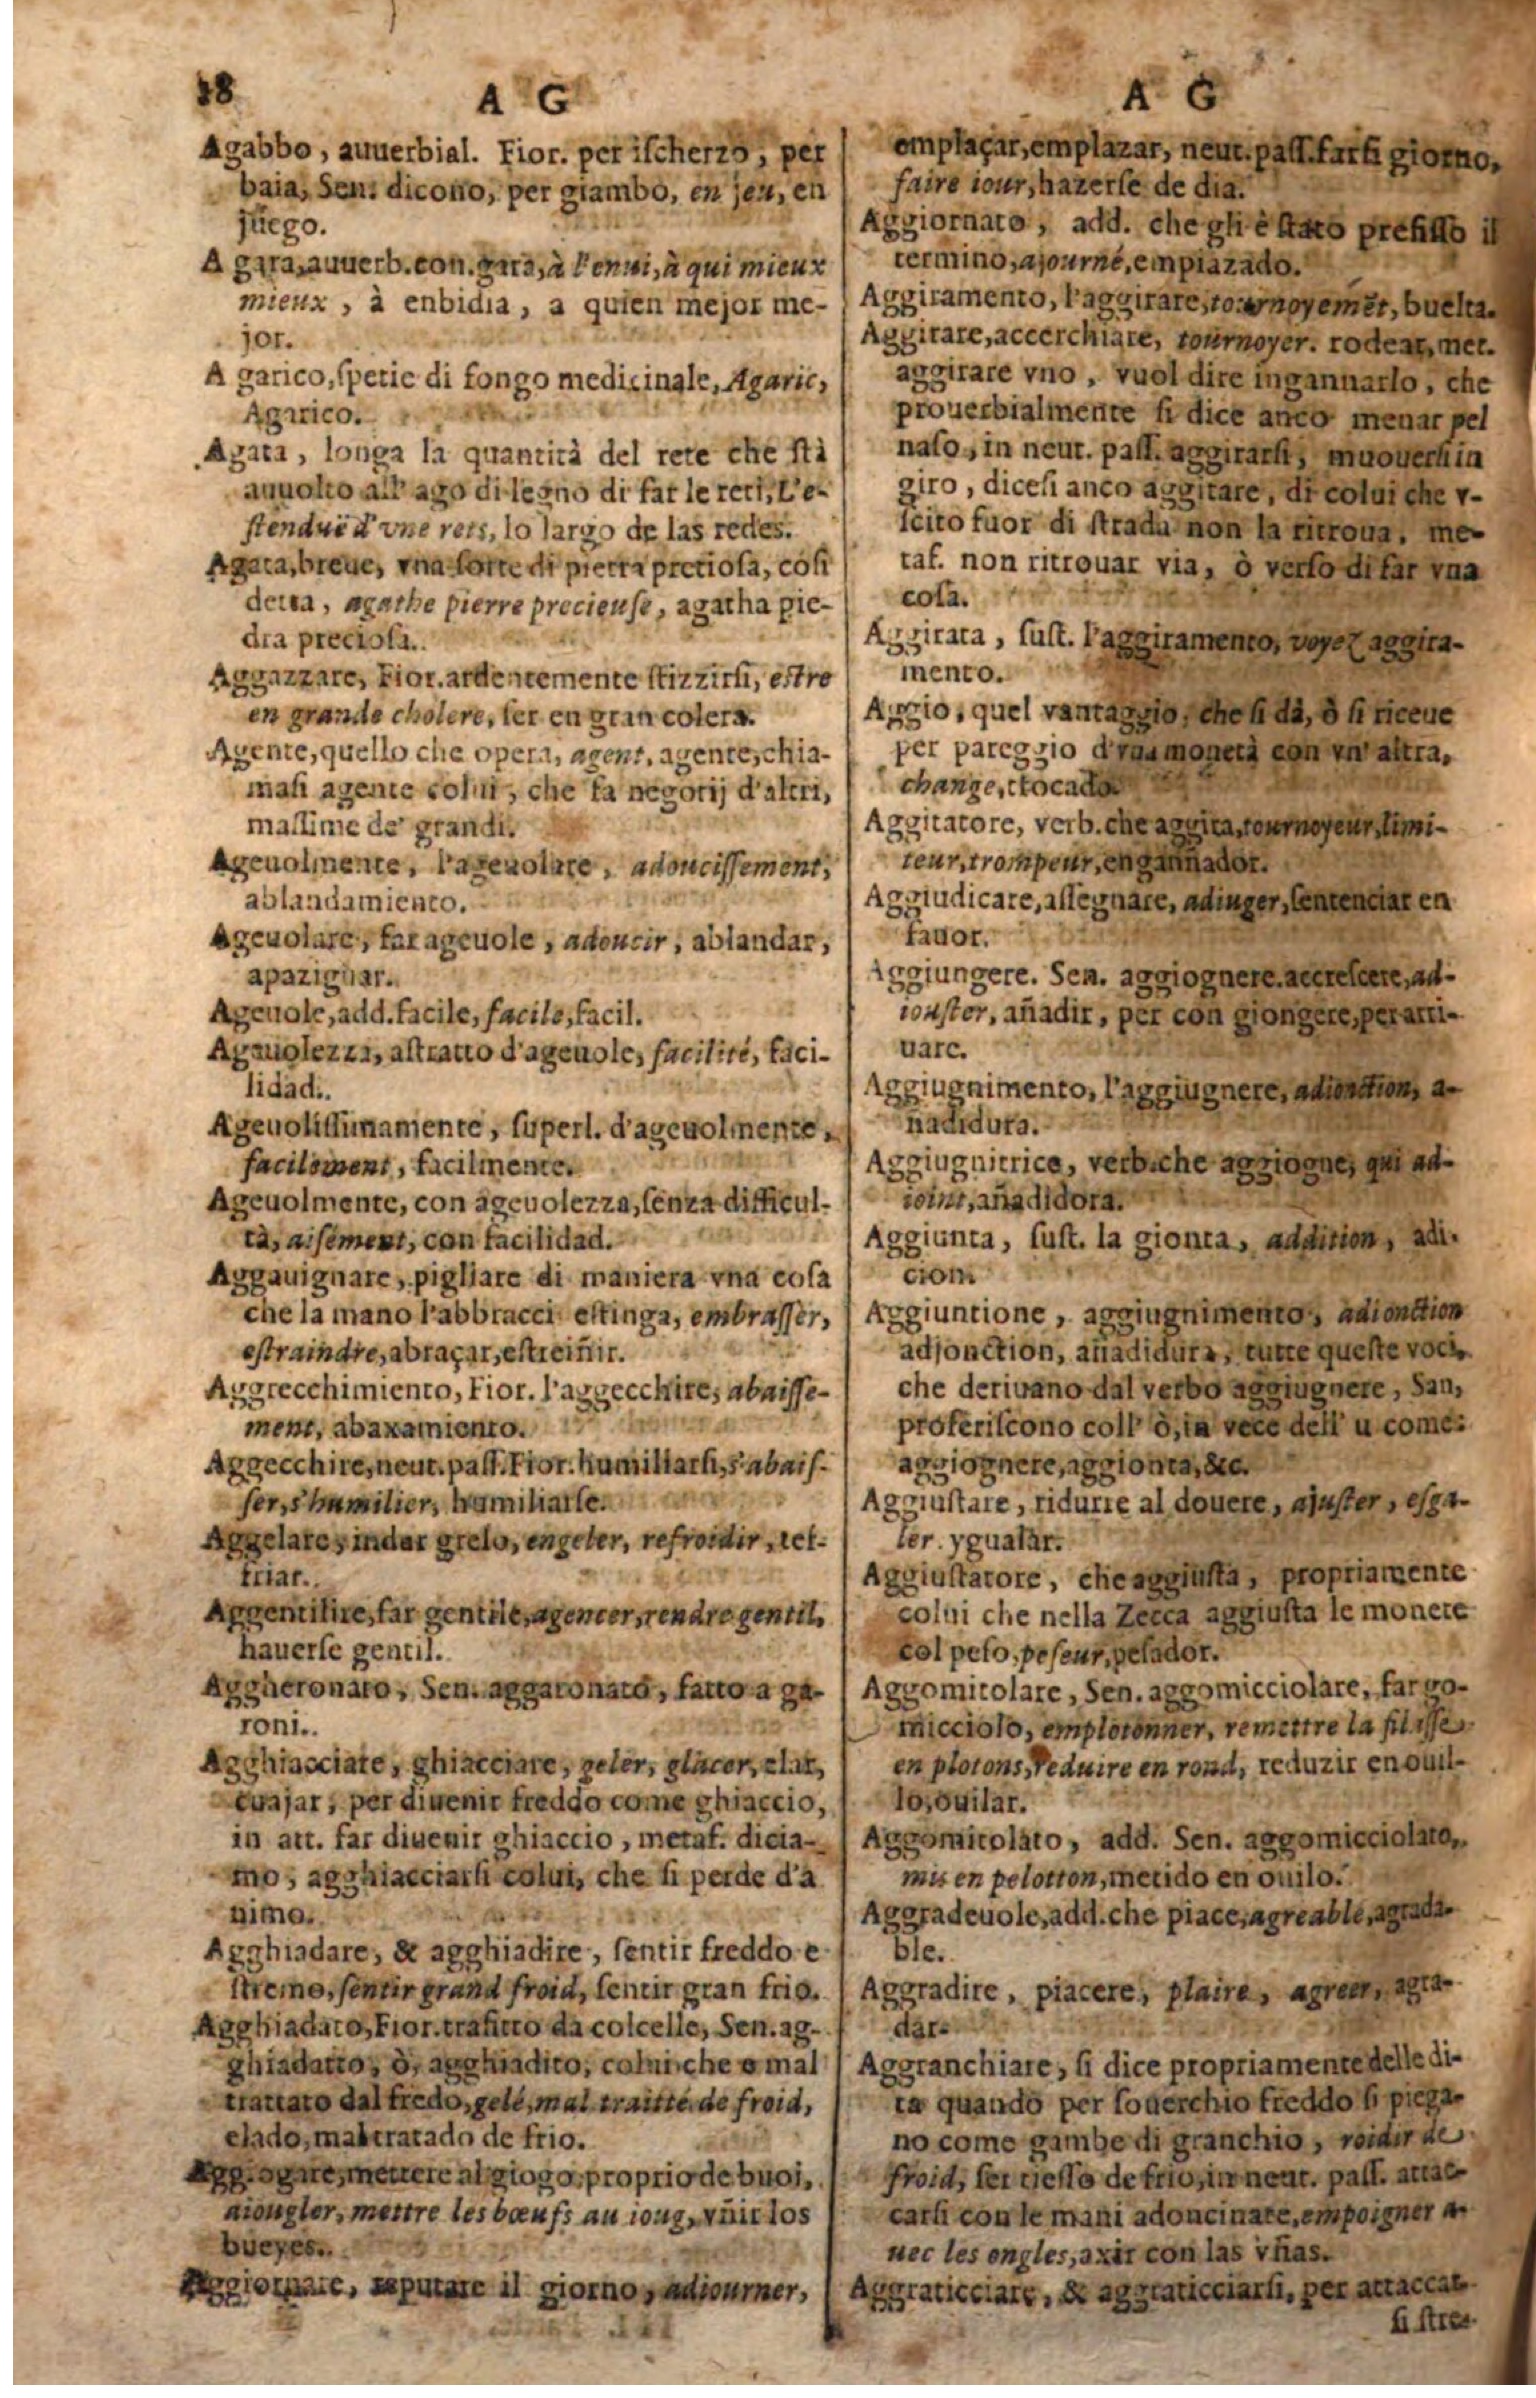 18
A G
Agabbo, auuerbial. Fior. per ischerzo, per
baia, Sen. dicono, per giambo, en jeu, en
juego.
A gara, auuerb. con. gara, à l'enui, à qui mieux
mieux, à enbidia, a quien mejor me-
jor.
A garico, spetie di fongo medicinale, Agaric,
Agarico.
Agata, longa la quantità del rete che stà
auuolto all' ago di legno di far le reti, L'e-
stenduë d'vne rets, lo largo de las redes.
Agata, breue, vna sorte di pietra pretiosa, cosi
detta, agathe pierre precieuse, agatha pie-
dra preciosa.
Aggazzare, Fior. ardentemente stizzirsi, estre
en grande cholere, ser en gran colera.
Agente, quello che opera, agent, agente, chia-
masi agente colui, che fa negotij d'altri,
massime de' grandi.
Ageuolmente, l'ageuolare, adoucissement,
ablandamiento.
Ageuolare, far ageuole, adoucir, ablandar,
apaziguar.
Ageuole, add. facile, facile, facil.
Ageuolezza, astratto d'ageuole, facilité, faci-
lidad.
Ageuolissimamente, superl. d'ageuolmente,
facilement, facilmente.
Ageuolmente, con ageuolezza, senza difficul-
tà, aisément, con facilidad.
Aggauignare, pigliare di maniera vna cosa
che la mano l'abbracci estinga, embrasser,
estraindre, abraçar, estreiñir.
Aggrecchimiento, Fior. l'aggecchire, abaisse-
ment, abaxamiento.
Aggecchire, neut. pass. Fior. humiliarsi, s'abais-
ser, s'humilier, humiliarse.
Aggelare, indar grelo, engeler, refroidir, ref-
friar.
Aggentilire, far gentile, agencer, rendre gentil,
hauerse gentil.
Aggheronato, Sen. aggaronato, fatto a ga-
roni.
Agghiacciate, ghiacciare, geler, glacer, elar,
cuajar, per diuenir freddo come ghiaccio,
in att. far diuenir ghiaccio, metaf. dicia-
mo, agghiacciarsi colui, che si perde d'a
nimo.
Agghiadare, & agghiadire, sentir freddo e
stremo, sentir grand froid, sentir gran frio.
Agghiadato, Fior. trafitto da colcelle, Sen. ag-
ghiadatto, ò, agghiadito, colui che e mal
trattato dal fredo, gelé, mal traitté de froid,
elado, maltratado de frio.
Aggiogare, mettere al giogo, proprio de buoi,
aiougler, mettre les bœufs au ioug, vñir los
bueyes.
Aggiornare, reputare il giorno, adiourner,
A G
emplaçar, emplazar, neut. pass. farsi giorno,
faire iour, hazerse de dia.
Aggiornato, add. che gli è stato prefisso il
termino, ajourné, emplazado.
Aggiramento, l'aggirare, tournoyemẽt, buelta.
Aggirare, accerchiare, tournoyer. rodear, met.
aggirare vno, vuol dire ingannarlo, che
prouerbialmente si dice anco menar pel
naso, in neut. pass. aggirarsi, muouersi in
giro, dicesi anco aggirare, di colui che v-
scito fuor di strada non la ritroua, me-
taf. non ritrouar via, ò verso di far vna
cosa.
Aggirata, sust. l'aggiramento, voyez aggira-
mento.
Aggio, quel vantaggio, che si dà, ò si riceue
per pareggio d'vna monetà con vn' altra,
change, trocado.
Aggitatore, verb. che aggira, tournoyeur, limi-
teur, trompeur, engañador.
Aggiudicare, assegnare, adiuger, sentenciar en
fauor.
Aggiungere. Sen. aggiognere. accrescere, ad-
iouster, añadir, per con giongere, per arri-
uare.
Aggiugnimento, l'aggiugnere, adionction, a-
ñadidura.
Aggiugnitrice, verb. che aggiogne, qui ad-
ioint, añadidora.
Aggiunta, sust. la gionta, addition, adi-
cion.
Aggiuntione, aggiugnimento, adionction
adjonction, añadidura, tutte queste voci,
che deriuano dal verbo aggiugnere, San,
proferiscono coll' ò, in vece dell' u come:
aggiognere, aggionta, &c.
Aggiustare, ridurre al douere, ajuster, esga-
ler. ygualar.
Aggiustatore, che aggiusta, propriamente
colui che nella Zecca aggiusta le monete
col peso, peseur, pesador.
Aggomitolare, Sen. aggomicciolare, far go-
micciolo, emplotonner, remettre la filisse
en plotons, reduire en rond, reduzir en ouil-
lo, ouilar.
Aggomitolato, add. Sen. aggomicciolato,
mis en pelotton, metido en ouilo.
Aggradeuole, add. che piace, agreable, agrada-
ble.
Aggradire, piacere, plaire, agreer, agra-
dar.
Aggranchiare, si dice propriamente delle di-
ta quando per souerchio freddo si piega-
no come gambe di granchio, roidir de
froid, ser tiesso de frio, in neut. pass. attac-
carsi con le mani adoncinate, empoigner a-
uec les ongles, axir con las vñas.
Aggraticciare, & aggraticciarsi, per attaccar-
si stre-